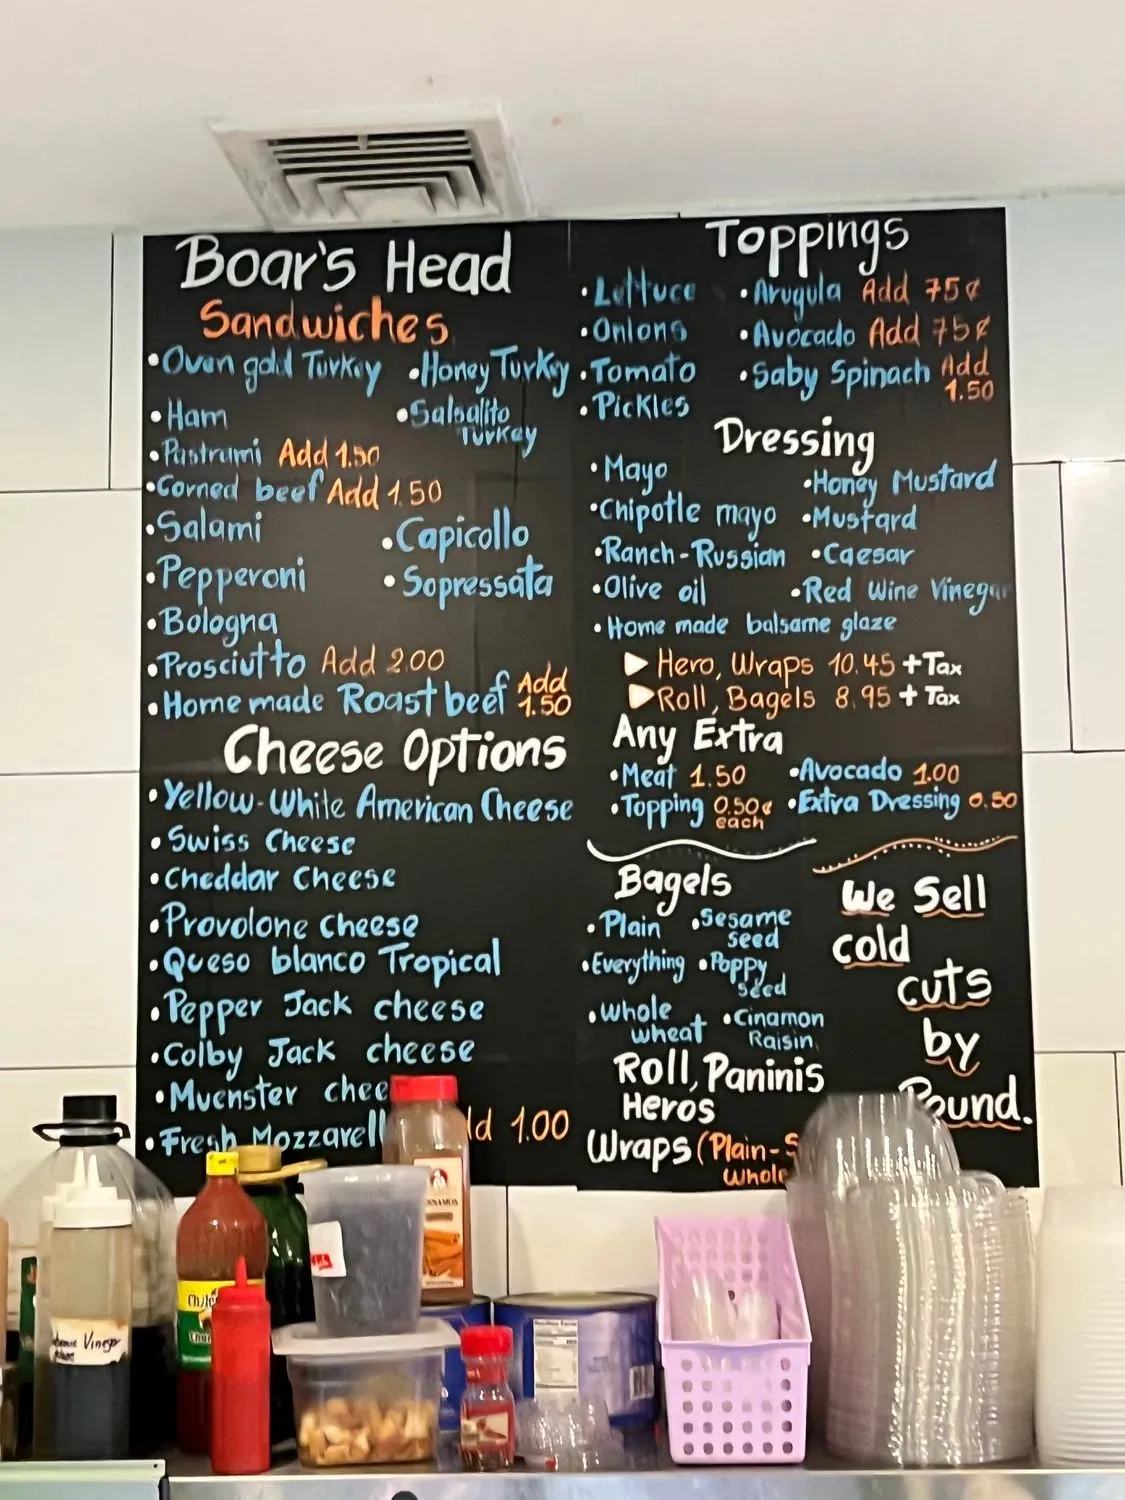 Boar's Head
Sandwiches
• Oven gold Turkey
• Honey Turkey
• Ham
• Salsalito
Turkey
• Pastrami Add 1.50
• Corned beef Add 1.50
• Salami
• Capicollo
• Pepperoni
• Sopressata
• Bologna
• Prosciutto Add 2.00
• Home made Roast beef Add
1.50
Cheese Options
• Yellow-White American Cheese
• Swiss Cheese
• Cheddar Cheese
• Provolone cheese
• Queso blanco Tropical
• Pepper Jack cheese
• Colby Jack cheese
• Muenster chee
• Fresh Mozzarell
1.00
Toppings
• Lettuce
• Arugula Add 75¢
• Onions
• Avocado Add 75¢
• Tomato
• Saby Spinach Add
1.50
• Pickles
Dressing
• Mayo
• Honey Mustard
• Chipotle mayo
• Mustard
• Ranch-Russian
• Caesar
• Olive oil
• Red Wine Vinegar
• Home made balsame glaze
▶ Hero, Wraps 10.45 + Tax
▶ Roll, Bagels 8.95 + Tax
Any Extra
• Meat 1.50
• Avocado 1.00
• Topping 0.50¢
each
• Extra Dressing 0.50
Bagels
• Plain
• Sesame
seed
• Everything
• Poppy
seed
• whole
wheat
• Cinamon
Raisin
Roll, Paninis
Heros
Wraps (Plain-S
Whole
We Sell
cold
cuts
by
Pound.
Vinegar